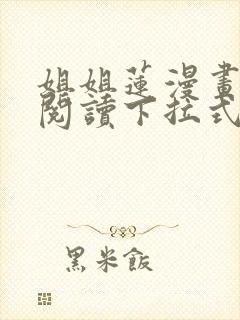 姐姐蓮漫畫
閱讀下拉式
黑米飯